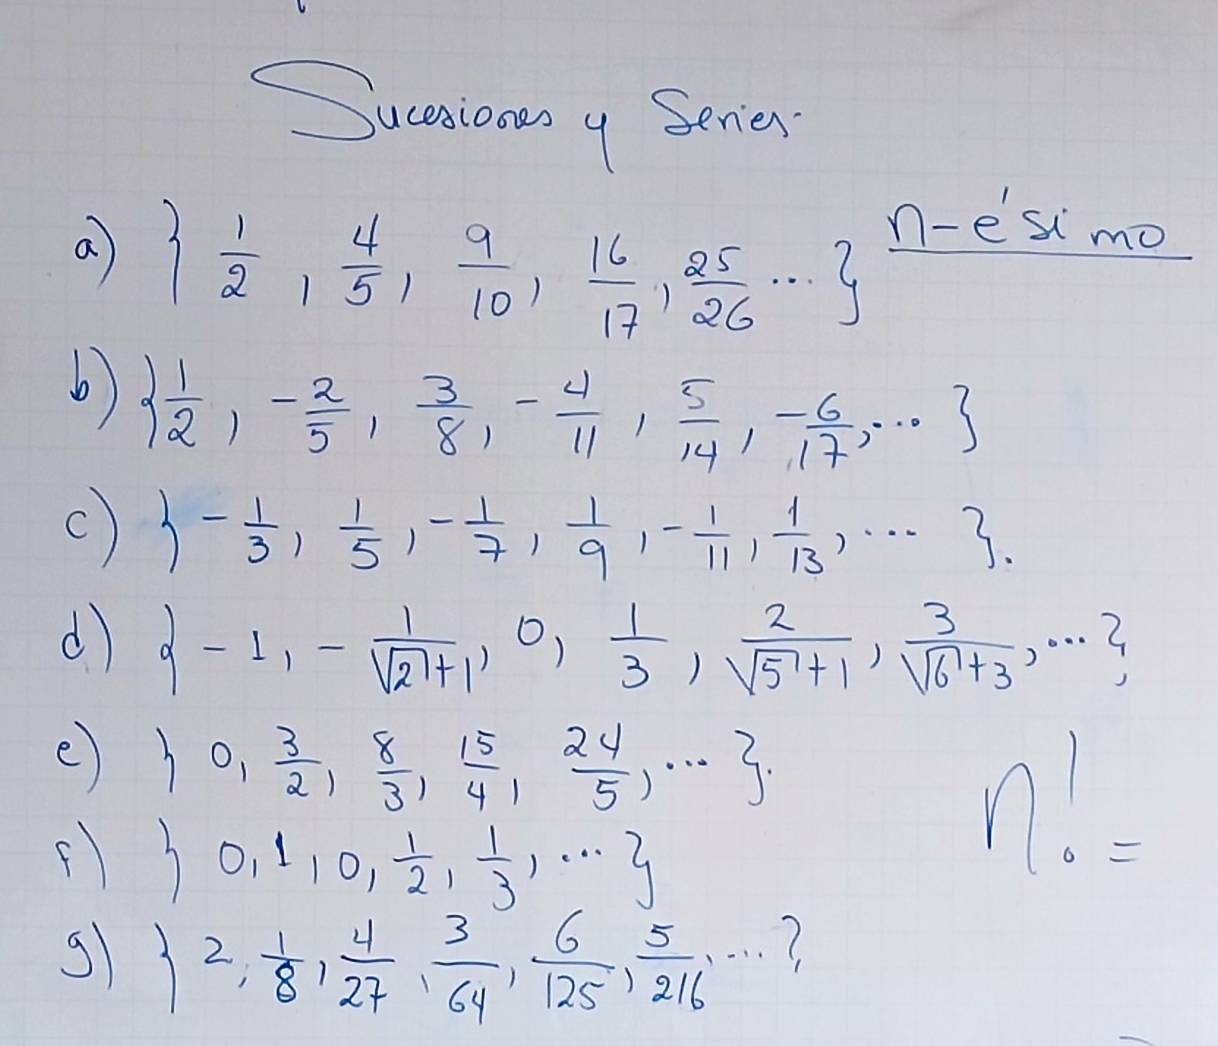 Sucesiones y Series.
a) { 1/2, 4/5, 9/10, 16/17, 25/26 ... } n-ésimo
b) { 1/2, -2/5, 3/8, -4/11, 5/14, -6/17, ... }
c) { -1/3, 1/5, -1/7, 1/9, -1/11, 1/13, ... }.
d) { -1, -1/(√2+1), 0, 1/3, 2/(√5+1), 3/(√6+3), ... }
e) { 0, 3/2, 8/3, 15/4, 24/5, ... }.
f) { 0, 1, 0, 1/2, 1/3, ... }
n! =
g) { 2, 1/8, 4/27, 3/64, 6/125, 5/216, ... }